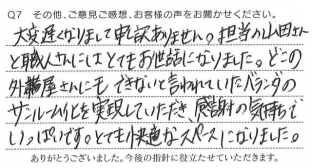 Q7 その他、ご意見ご感想、お客様の声をお聞かせください。
大変遅くなりまして申訳ありません。担当の山田さん
と職人さんにはとてもお世話になりました。どこの
外構屋さんにも できないと言われていたベランダの
サンルーム化を実現していただき、感謝の気持ちで
いっぱいです。とても快適なスペースになりました。
ありがとうございました。今後の指針に役立たせていただきます。